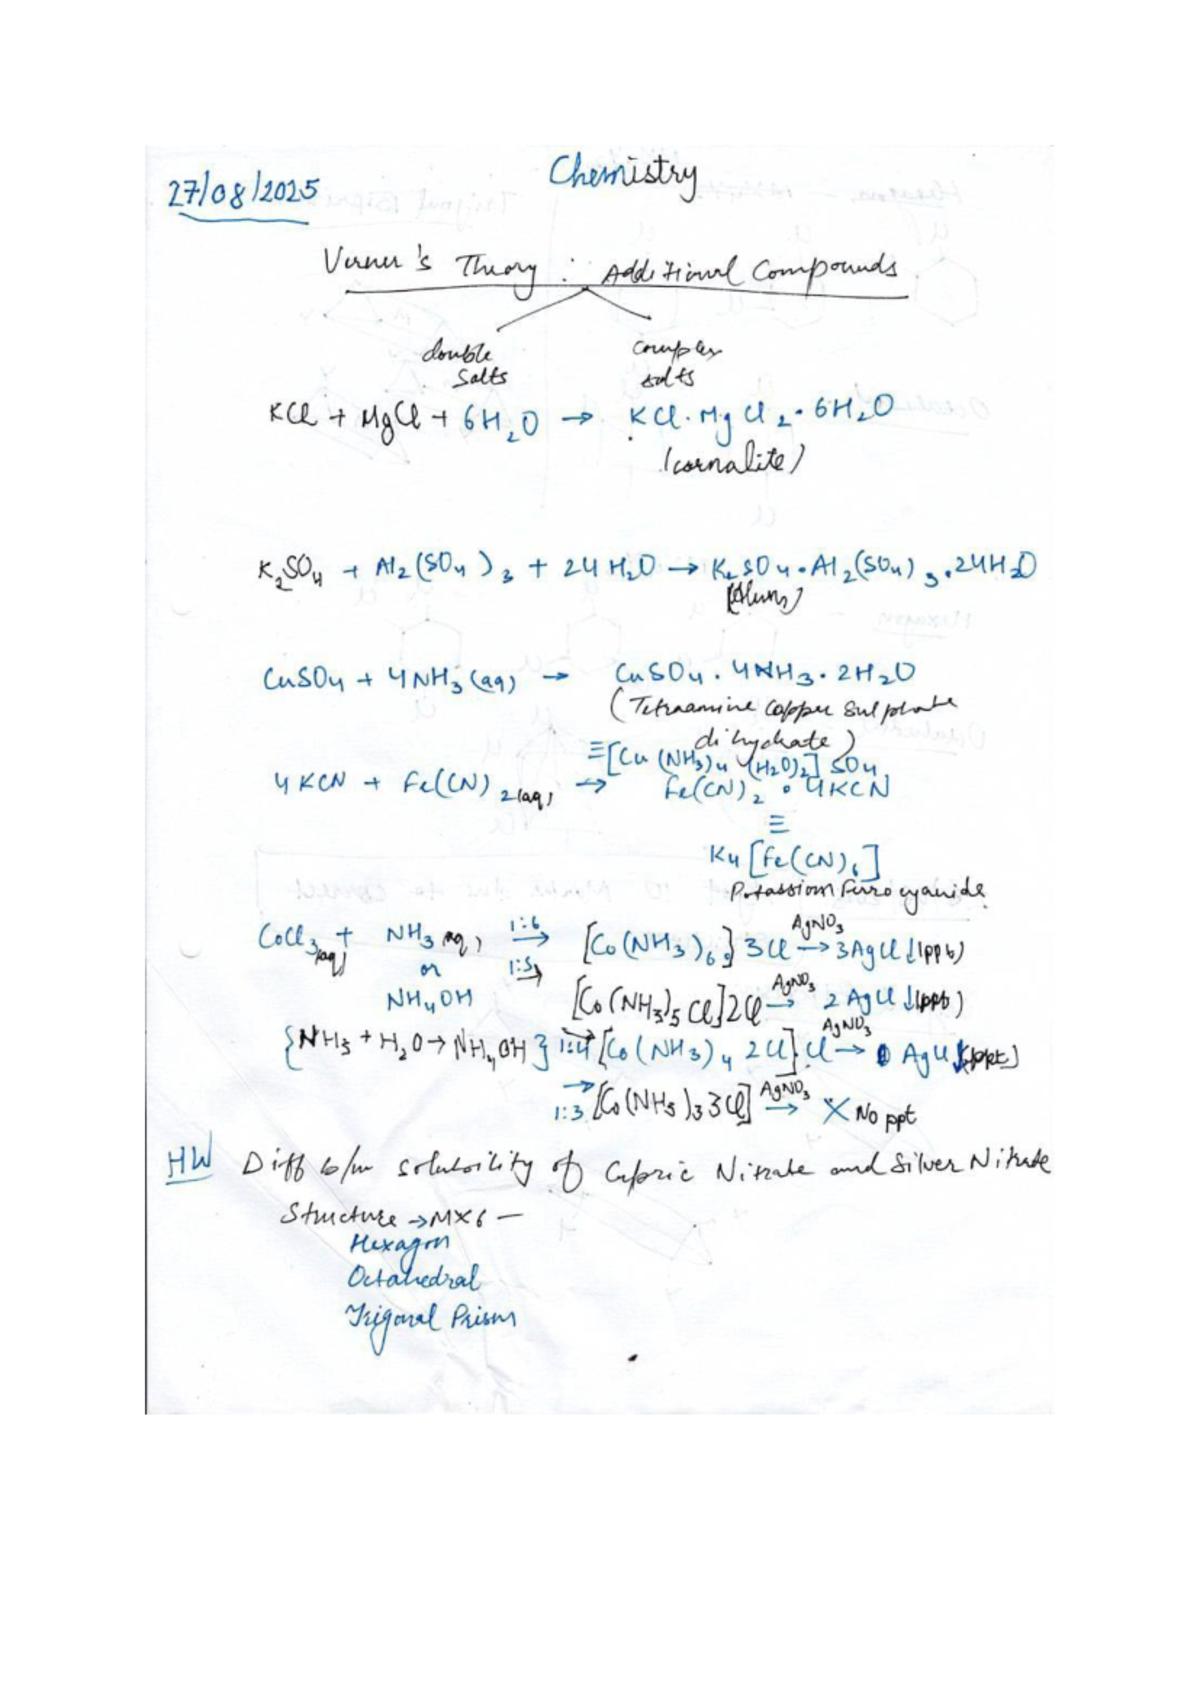 27/08/2025
Chemistry
Verner's Theory : Additional Compounds
double
Salts
complex
salts
KCl + MgCl + 6H₂O → KCl·MgCl₂·6H₂O
(cornalite)
K₂SO₄ + Al₂(SO₄)₃ + 24H₂O → K₂SO₄·Al₂(SO₄)₃·24H₂O
[Alum]
CuSO₄ + 4NH₃(aq) → CuSO₄·4NH₃·2H₂O
(Tetraamine Copper Sulphate
dihydrate)
≡[Cu(NH₃)₄(H₂O)₂]SO₄
4KCN + Fe(CN)₂(aq) → Fe(CN)₂·4KCN
≡
K₄[Fe(CN)₆]
Potassium Ferrocyanide
CoCl₃(aq) + NH₃(aq) 1:6 → [Co(NH₃)₆]3Cl AgNO₃ → 3AgCl↓(ppt)
or 1:5 →
NH₄OH [Co(NH₃)₅Cl]2Cl AgNO₃ → 2AgCl↓(ppt)
{NH₃ + H₂O → NH₄OH} 1:4 → [Co(NH₃)₄2Cl]Cl AgNO₃ → AgCl↓(ppt)
→ 1:3 [Co(NH₃)₃3Cl] AgNO₃ → X No ppt
HW Diff b/w solubility of Cupric Nitrate and Silver Nitrate
Structure → MX6 —
Hexagon
Octahedral
Trigonal Prism